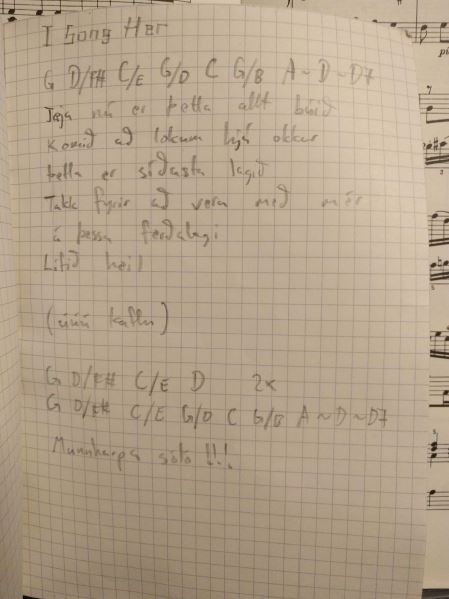 I Song Her
G D/F# C/E G/D C G/B A ~ D ~ D7
Jæja nú er þetta allt búið
Komið að lokum hjá okkur
Þetta er síðasta lagið
Takk fyrir að vera með mér
á þessu ferðalagi
Lifið heil
(úúú kaflin)
G D/F# C/E D 2x
G D/F# C/E G/D C G/B A ~ D ~ D7
Munnharpa sóló !!!